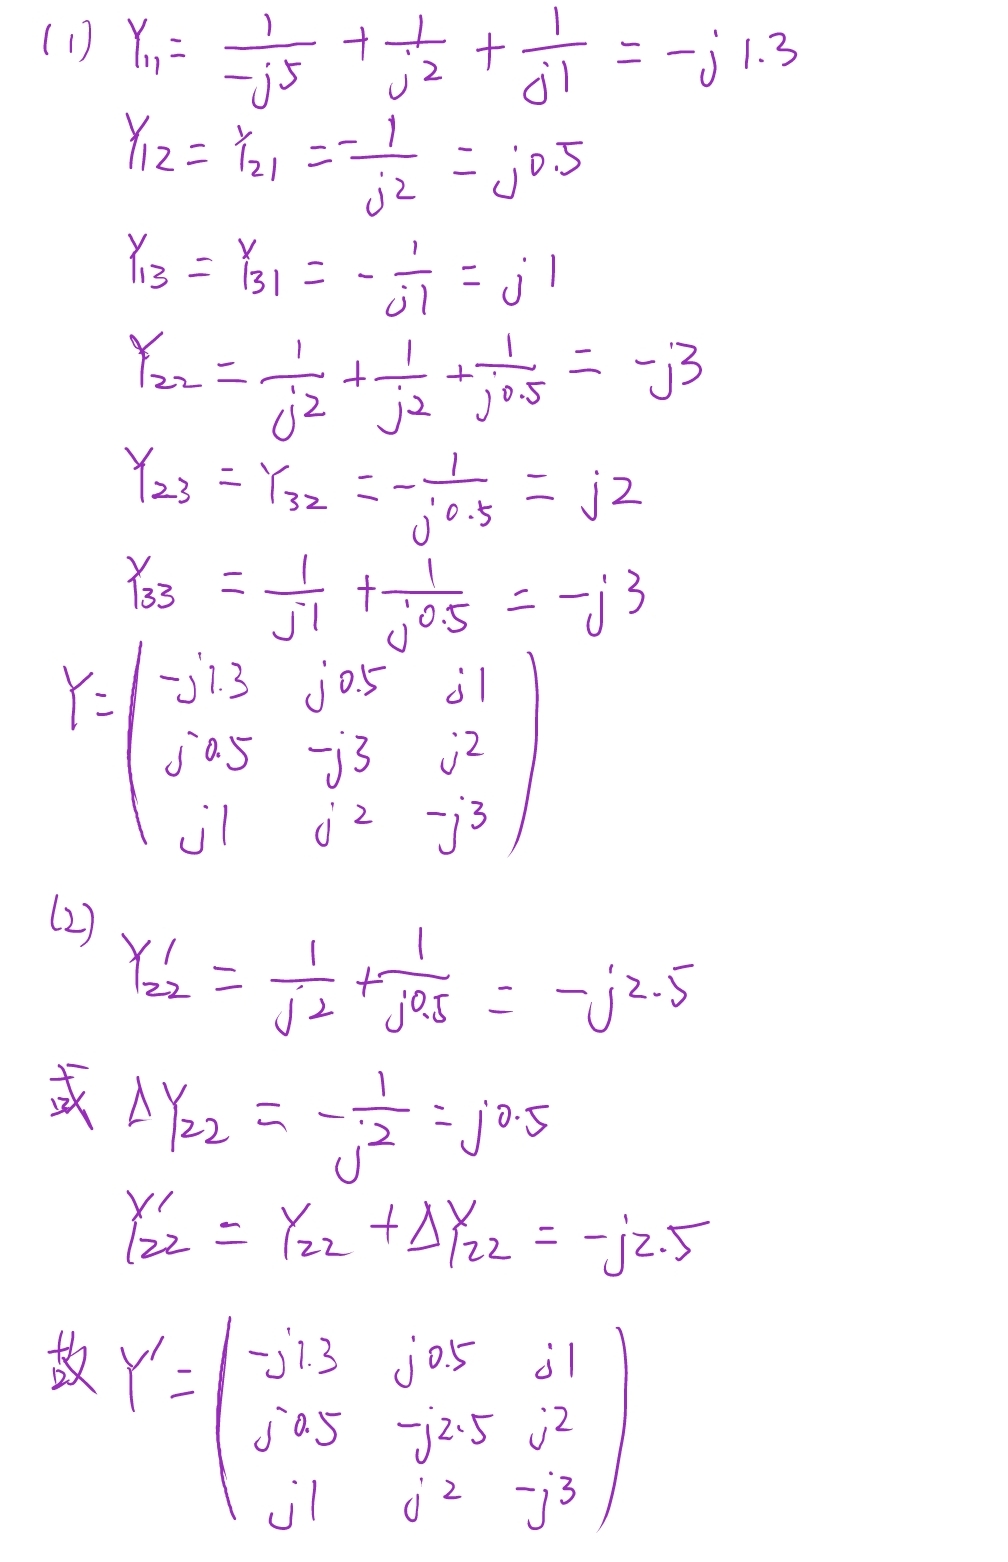 (1) Y₁₁ = 1/(-j5) + 1/(j2) + 1/(j1) = -j1.3
Y₁₂ = Y₂₁ = -1/(j2) = j0.5
Y₁₃ = Y₃₁ = -1/(j1) = j1
Y₂₂ = 1/(j2) + 1/(j2) + 1/(j0.5) = -j3
Y₂₃ = Y₃₂ = -1/(j0.5) = j2
Y₃₃ = 1/(j1) + 1/(j0.5) = -j3
Y = ( -j1.3 j0.5 j1
j0.5 -j3 j2
j1 j2 -j3 )
(2)
Y₂₂′ = 1/(j2) + 1/(j0.5) = -j2.5
或 ΔY₂₂ = -1/(j2) = j0.5
Y₂₂′ = Y₂₂ + ΔY₂₂ = -j2.5
故 Y′ = ( -j1.3 j0.5 j1
j0.5 -j2.5 j2
j1 j2 -j3 )